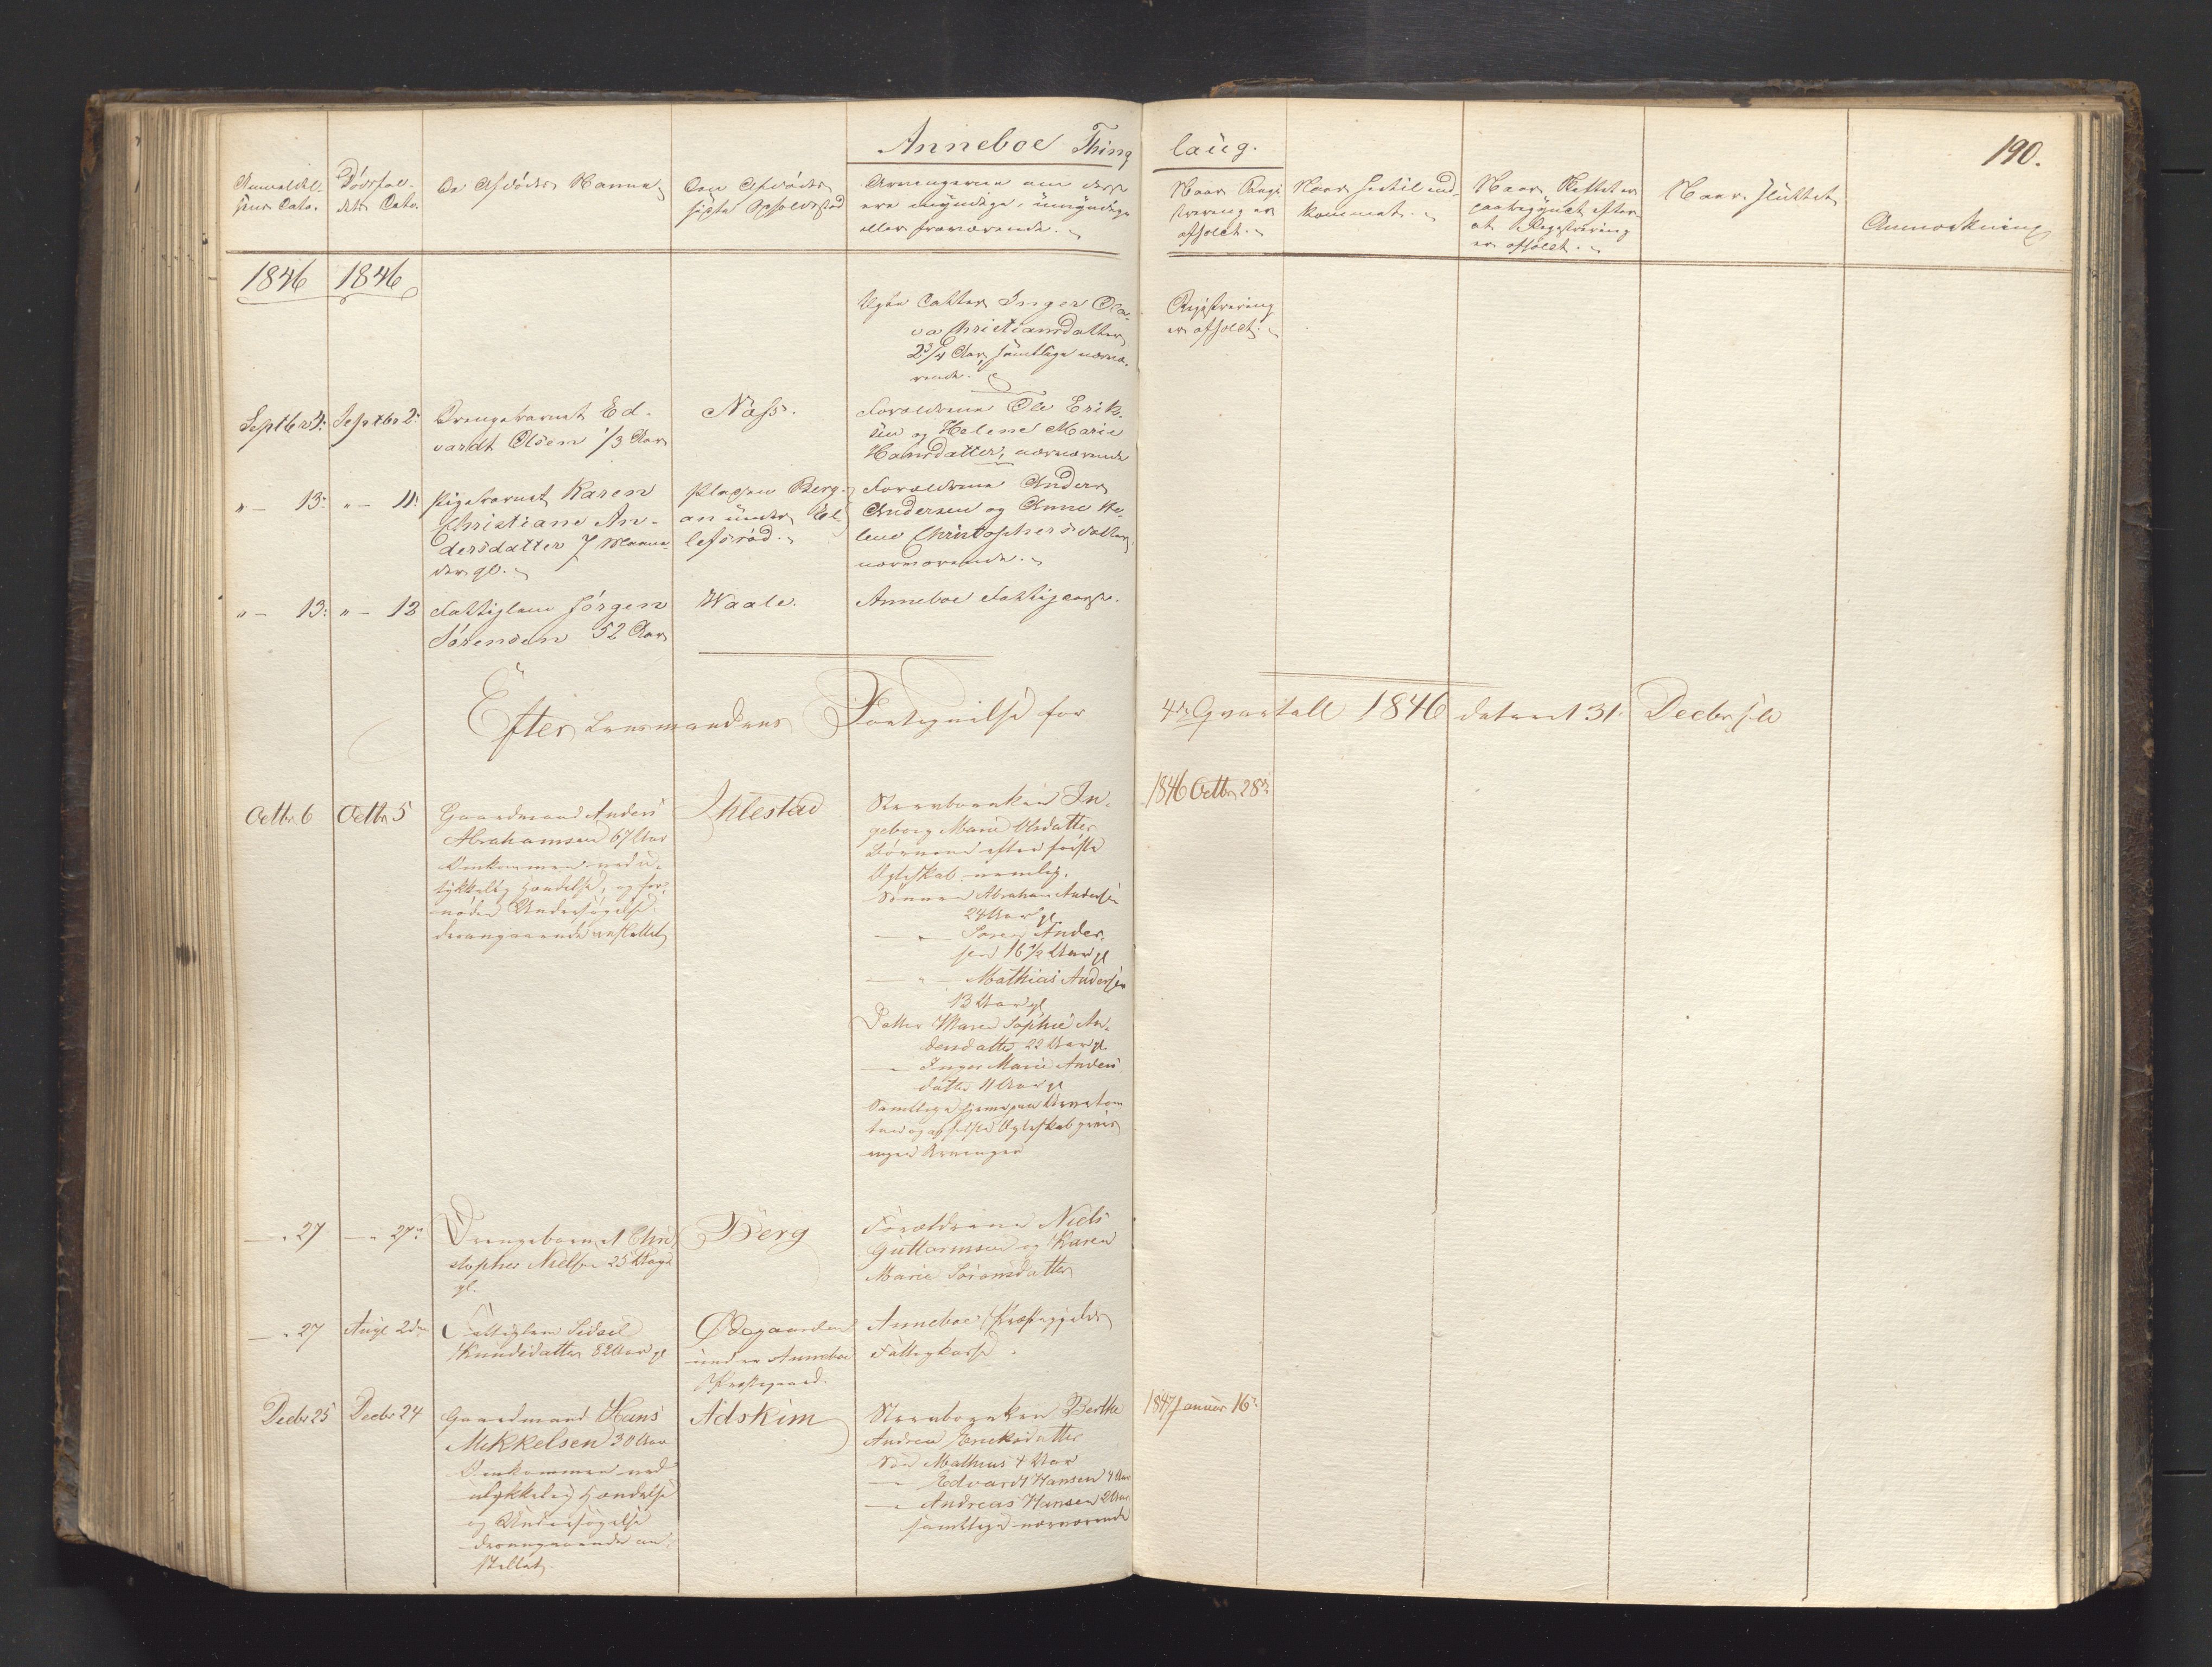 Anneboe Thing
laug.
190.
Anmeldel-
sens Dato.
Dødsfal-
dets Dato.
De Afdødes Navne
Den Afdødes
sidste Opholdssted
Arvingerne om disse
ere myndige, umyndige
eller fraværende.
Naar Regi
strering er
afholdt.
Naar hertil ind-
kommet.
Naar Skiftet er
paabegyndt efter
at Registrering
er afholdt.
Naar sluttet
Anmærkning
1846
1846
Datter Inger Ola-
va Christiansdatter
2 3/4 Aar, samtlige nærvæ-
rende.
Registrering
er afholdt.
Septbr 4.
Septbr 2.
Drengebarnet Ed-
vardt Olsen 1/3 Aar
Næss.
Forældrene Ole Erik-
sen og Helene Marie
Hansdatter, nærværende
" - 13.
" - 11.
Pigebarnet Karen
Christiane An-
dersdatter 7 Maane-
der gl.
Pladsen Berg-
an under El-
lefsrød.
Forældrene Anders
Andersen og Anne He-
lene Christophersdatter
nærværende.
" - 13.
" - 12
Fattiglem Jørgen
Sørensen 52 Aar
Waale.
Anneboe Fattigcasse.
Efter Lensmandens Fortegnelse for
4de Qvartall 1846 dateret 31. Decbr s. A.
Octbr 6
Octbr 5
Gaardmand Anders
Abrahamsen 67 Aar
Omkommen ved u-
lykkelig Hændelse, og for-
nøden Undersøgelse
derangaaende anstillet
Iklestad
Steervboenken In-
geborg Marie Olsdatter
Børnene efter første
Ægteskab nemlig.
Sønnen Abraham Andersen
24 Aar gl
— " — Søren Ander-
sen 16 1/2 Aar gl
— " — Mathias Andersen
13 Aar gl
Datter Maren Sophie An-
dersdatter 22 Aar gl.
— Inger Marie Anders
datter 11 Aar gl
Samtlige hjemme paa
Ægteskab
ingen Arvinger
1846 Octbr 28de
— " 27
— " 27de
Drengebarnet Chri
stopher Nielsen 25 Dage
gl.
Berg
Forældrene Niels
Guttormsen og Karen
Marie Sørensdatter
— " 27
Augt 2den
Fattiglem Sidsel
Knudsdatter 82 Aar gl
Ødegaarden
under Anneboe
Præstegaard.
Anneboe Præstegjelds
Fattigkasse.
Decbr 25
Decbr 24
Gaardmand Hans
Mikkelsen 30 Aar
Omkommen ved
ulykkelig Hændelse
og Undersøgelse
derangaaende an-
stillet
Adskim
Steervboenken Berthe
Andrea Ericksdatter
Søn Mathias 7 Aar
— " Edvardt Hansen 4 Aar
— " Andreas Hansen 2 Aar
samtlige nærværende
1847 Januar 16de